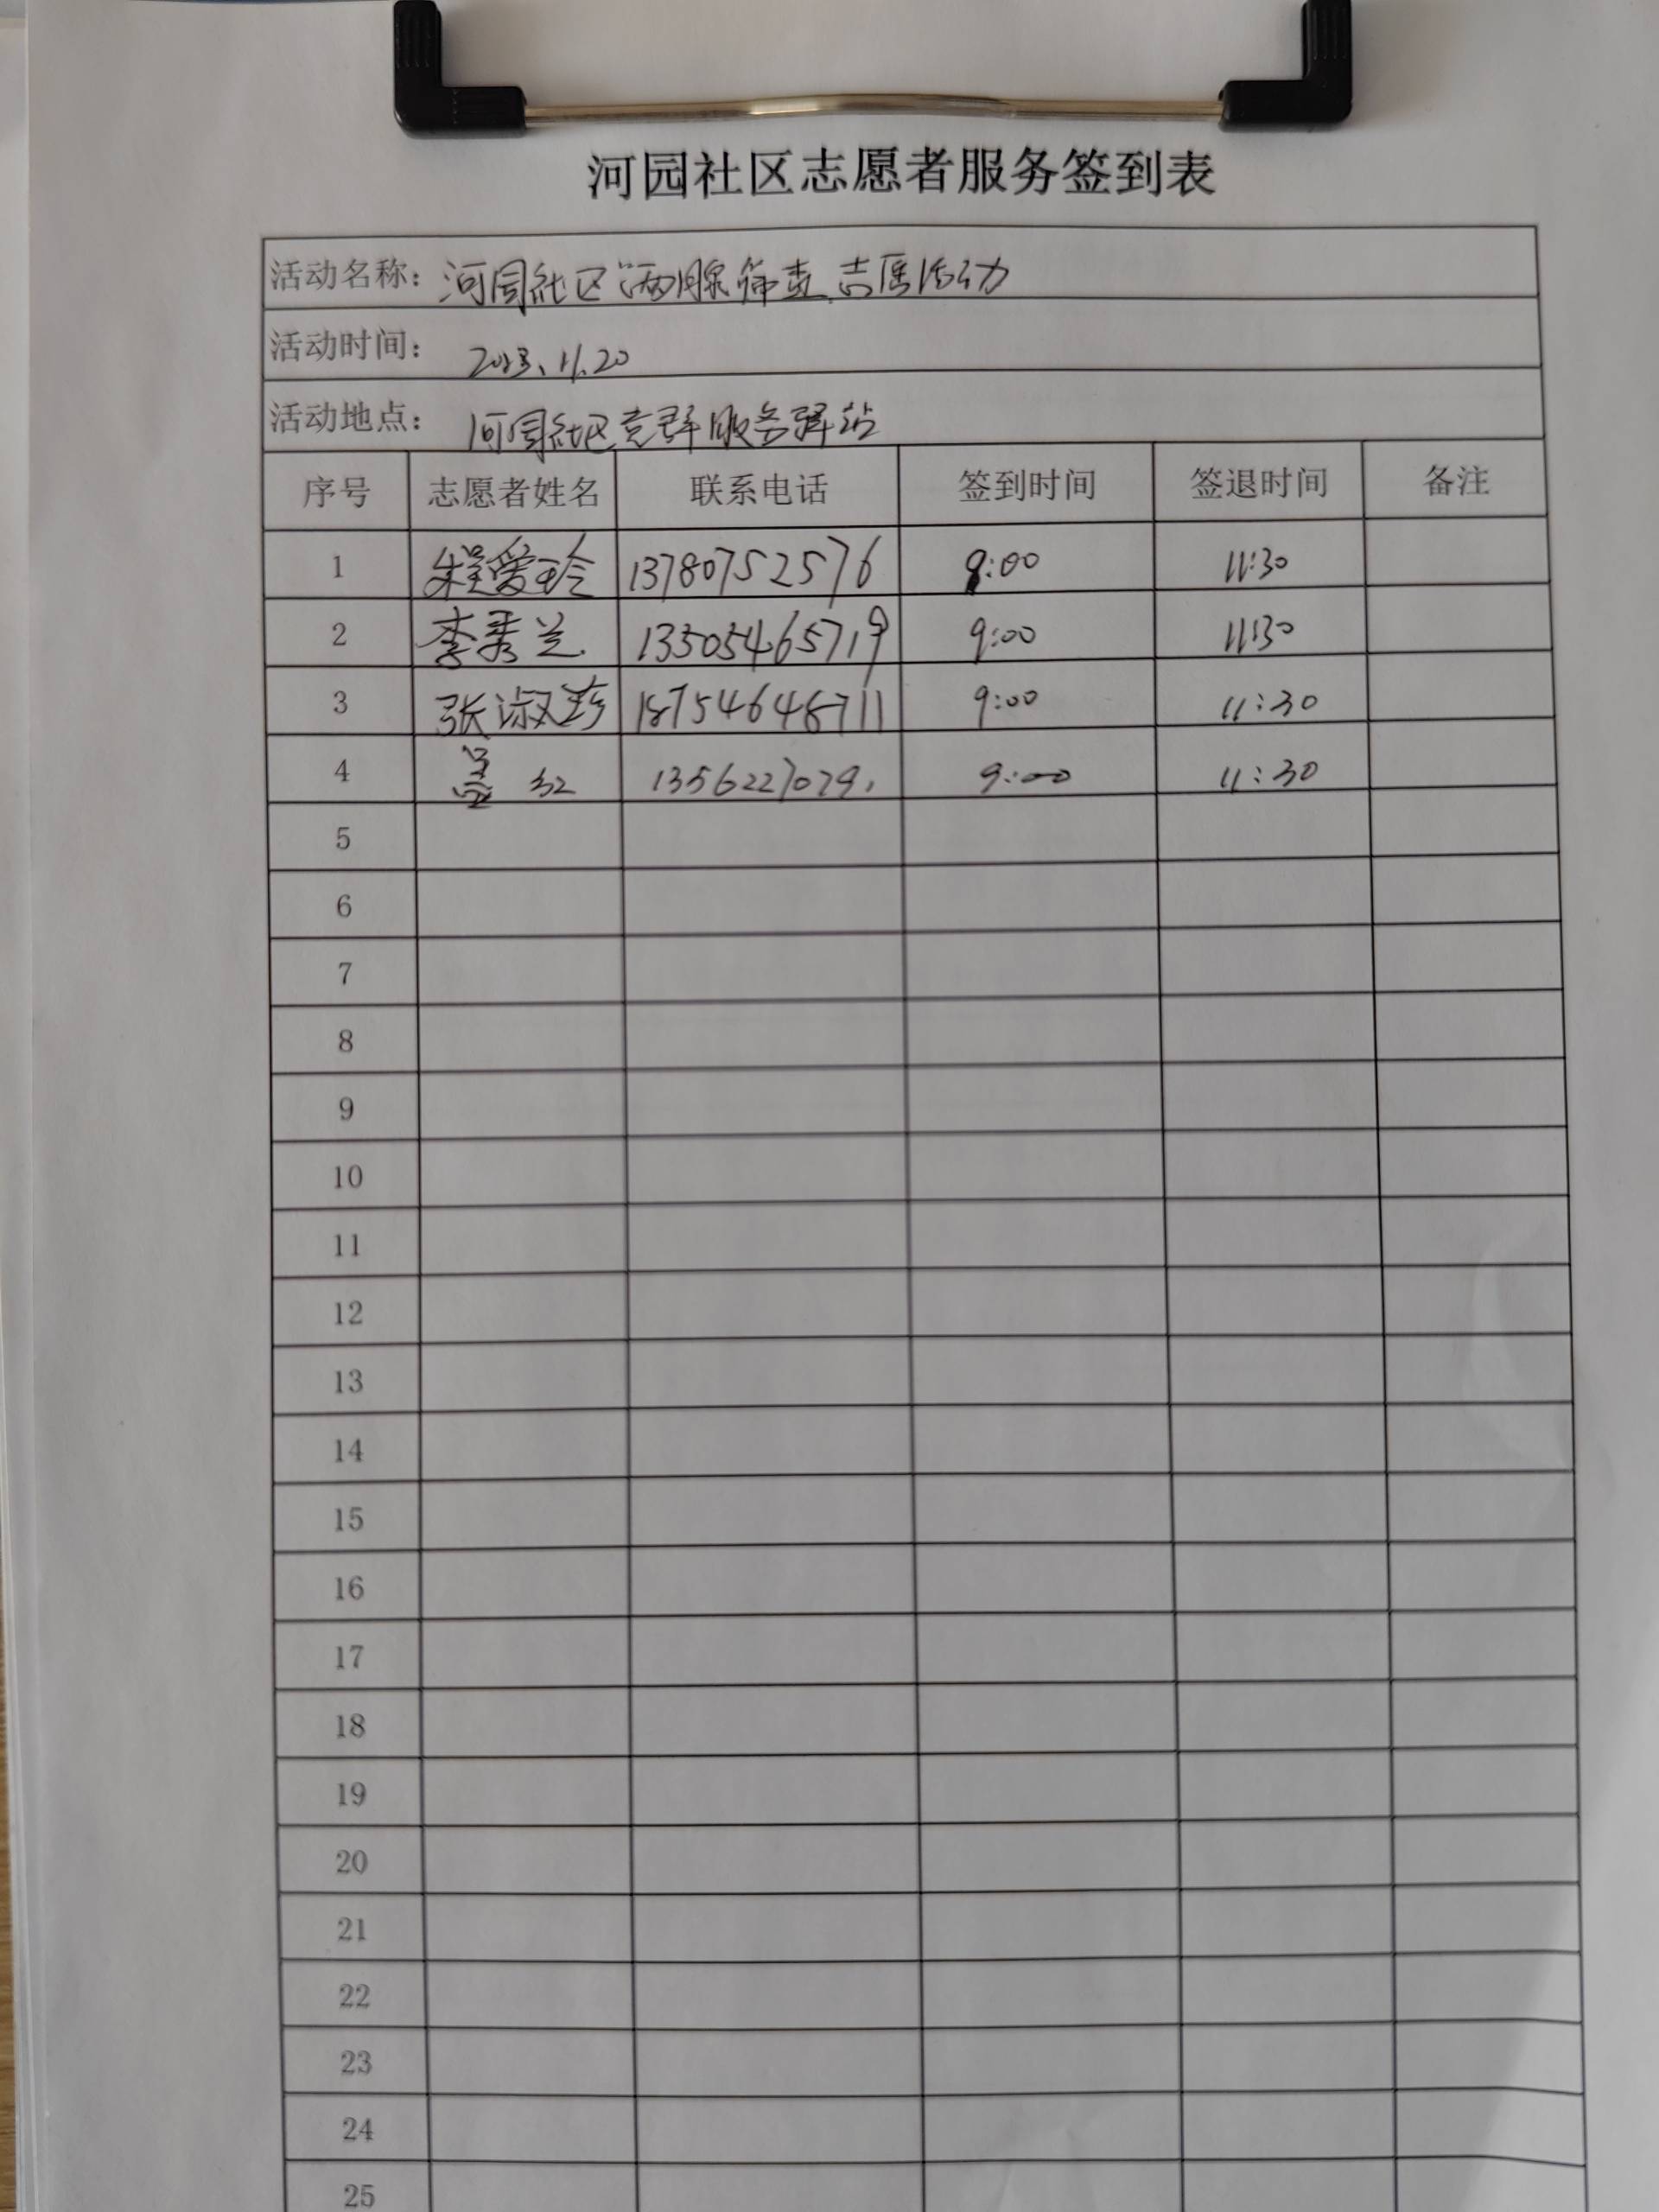 河园社区志愿者服务签到表
活动名称：河园社区“两腺筛查志愿活动
活动时间：2023.11.20
活动地点：河园社区党群服务驿站
序号 志愿者姓名 联系电话 签到时间 签退时间 备注
1 程爱玲 13780752576 9:00 11:30
2 李秀兰 13505465719 9:00 11:30
3 张淑珍 18754648711 9:00 11:30
4 红 9:00 11:30
5
6
7
8
9
10
11
12
13
14
15
16
17
18
19
20
21
22
23
24
25